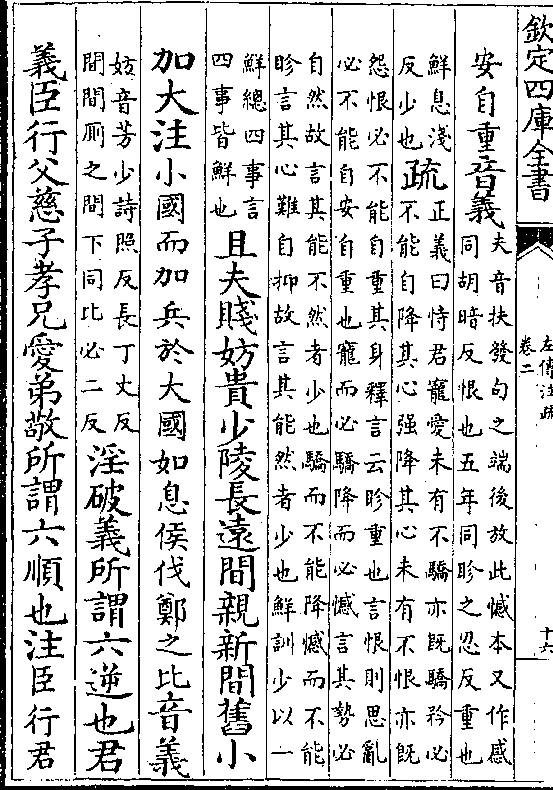 欽定四庫全書
左傳注疏
卷二
十六
安自重音義
夫音扶發句之端後放此憾本又作感
同胡暗反恨也五年同眕之忍反重也
鮮息淺
反少也
疏
正義曰恃君寵愛未有不驕亦既驕矜必
不能自降其心强降其心未有不恨亦既
怨恨必不能自重其身釋言云眕重也言恨則思亂
必不能自安自重也寵而必驕降而必憾言其勢必
自然故言其能不然者少也驕而不能降憾而不能
眕言其心難自抑故言其能然者少也鮮訓少以一
鮮總四事言
四事皆鮮也
且夫賤妨貴少陵長遠間親新間舊小
加大注小國而加兵於大國如息侯伐鄭之比音義
妨音芳少詩照反長丁丈反
間間厠之間下同比必二反
淫破義所謂六逆也君
義臣行父慈子孝兄愛弟敬所謂六順也注臣行君